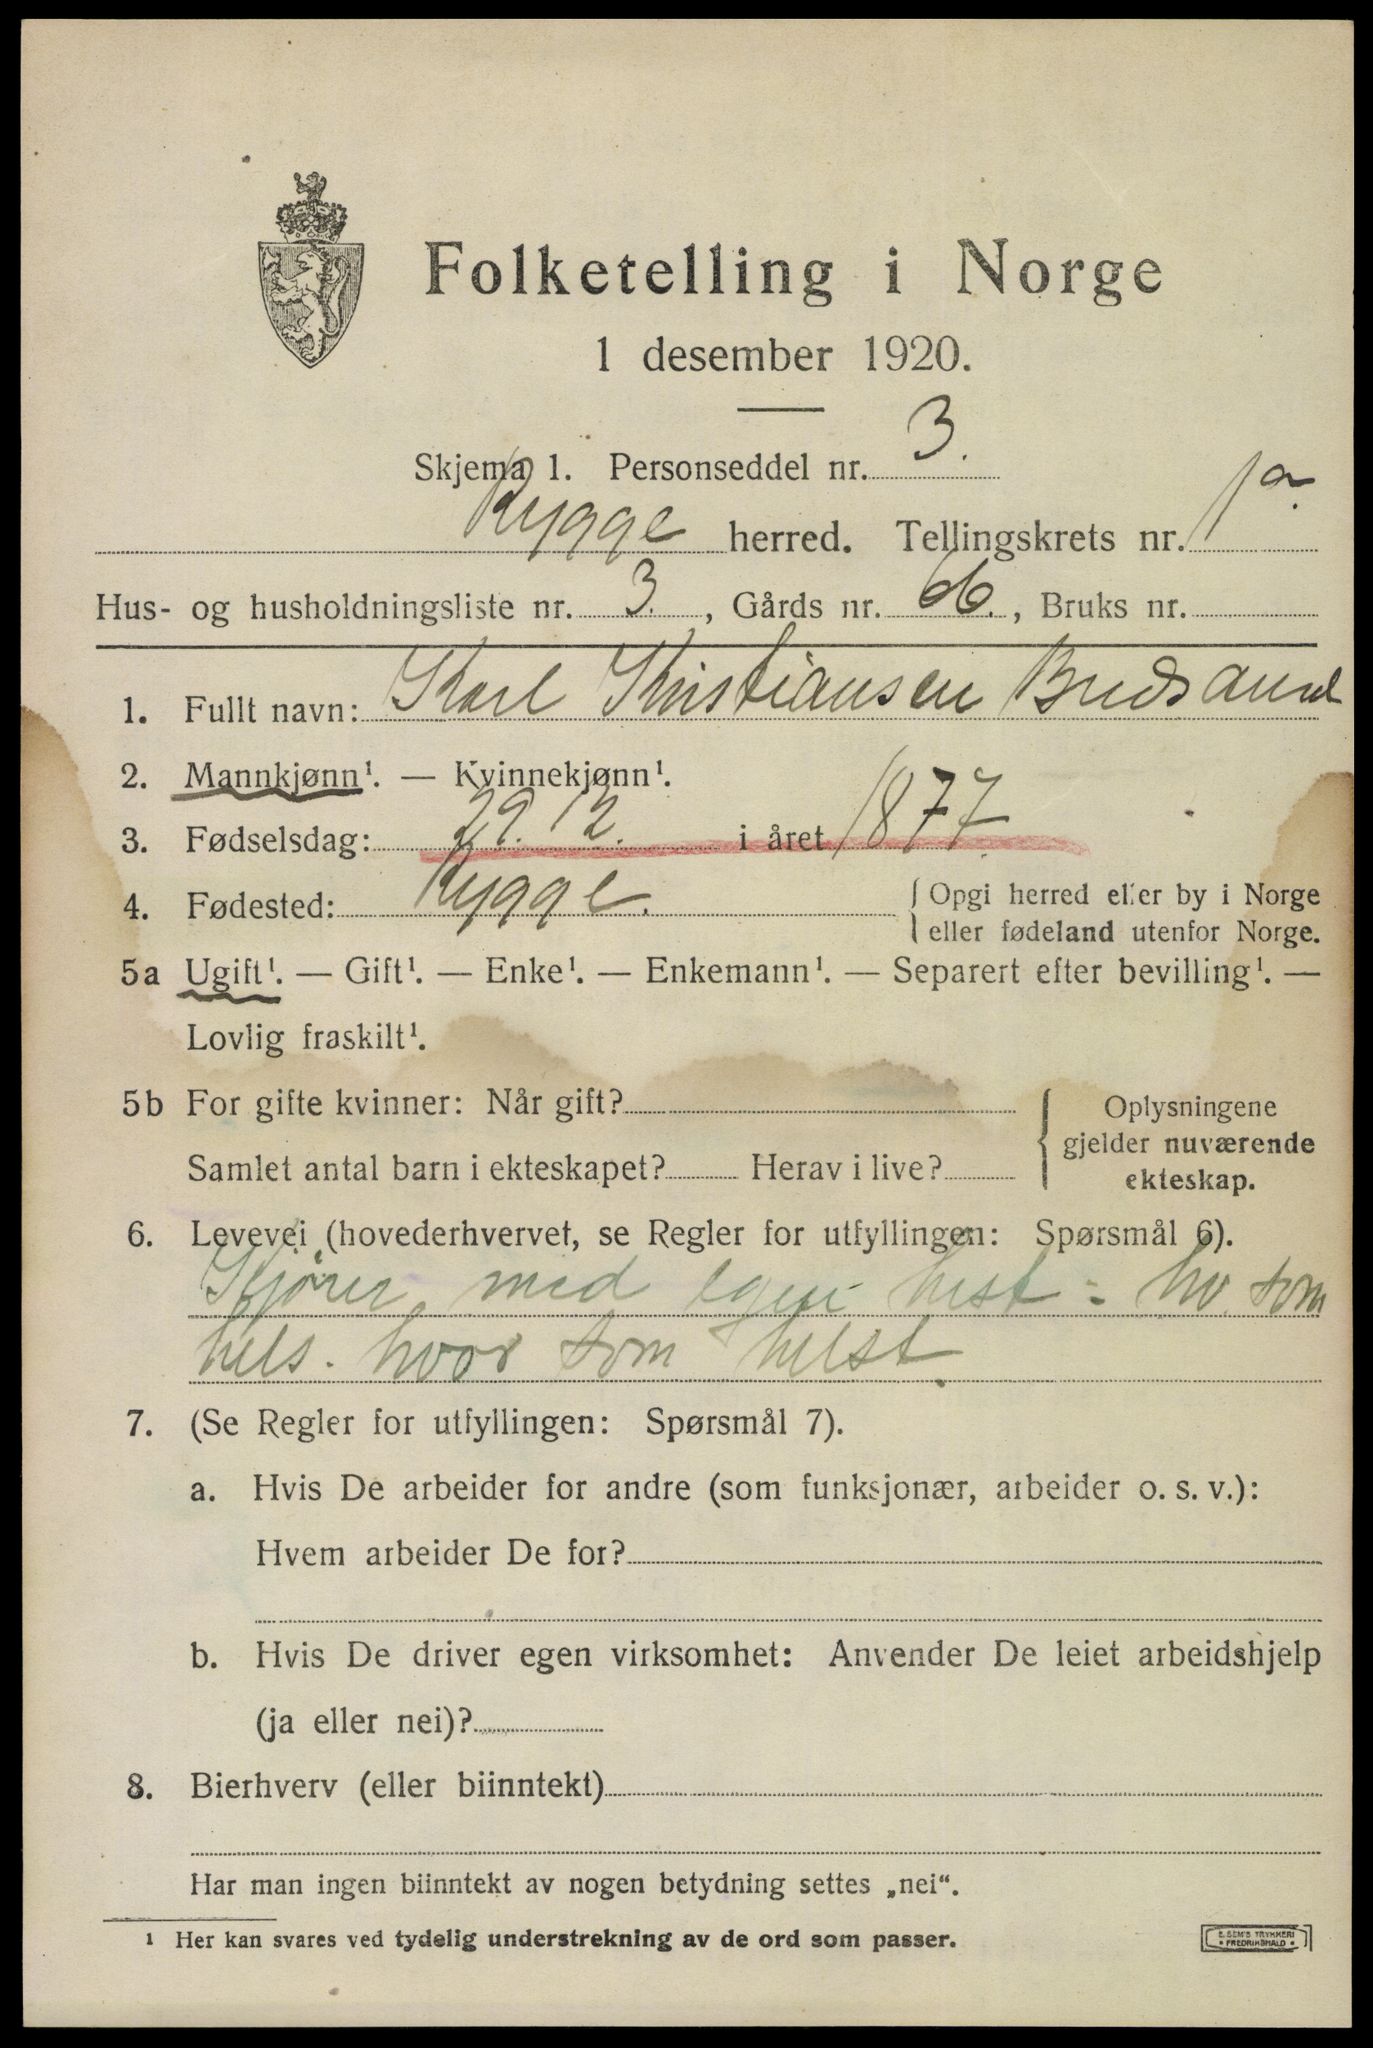 Folketelling i Norge
1 desember 1920.
Skjema 1. Personseddel nr. 3.
Rygge herred. Tellingskrets nr. 1a.
Hus- og husholdningsliste nr. 3., Gårds nr. 66., Bruks nr.
1. Fullt navn: Karl Kristiansen Bredsand
2. Mannkjønn¹. — Kvinnekjønn¹.
3. Fødselsdag: 29. 12. i året 1877.
4. Fødested: Rygge. { Opgi herred eller by i Norge
eller fødeland utenfor Norge.
5a Ugift¹. — Gift¹. — Enke¹. — Enkemann¹. — Separert efter bevilling¹. —
Lovlig fraskilt¹.
5b For gifte kvinner: Når gift? { Oplysningene
gjelder nuværende
Samlet antal barn i ekteskapet? Herav i live? ekteskap.
6. Levevei (hovederhvervet, se Regler for utfyllingen: Spørsmål 6).
Kjører med egen hest - hv. som
hels. hvor som helst.
7. (Se Regler for utfyllingen: Spørsmål 7).
a. Hvis De arbeider for andre (som funksjonær, arbeider o. s. v.):
Hvem arbeider De for?
b. Hvis De driver egen virksomhet: Anvender De leiet arbeidshjelp
(ja eller nei)?
8. Bierhverv (eller biinntekt)
Har man ingen biinntekt av nogen betydning settes „nei“.
¹ Her kan svares ved tydelig understrekning av de ord som passer.
E. SEM'S TRYKKERI
• FREDRIKSHALD •